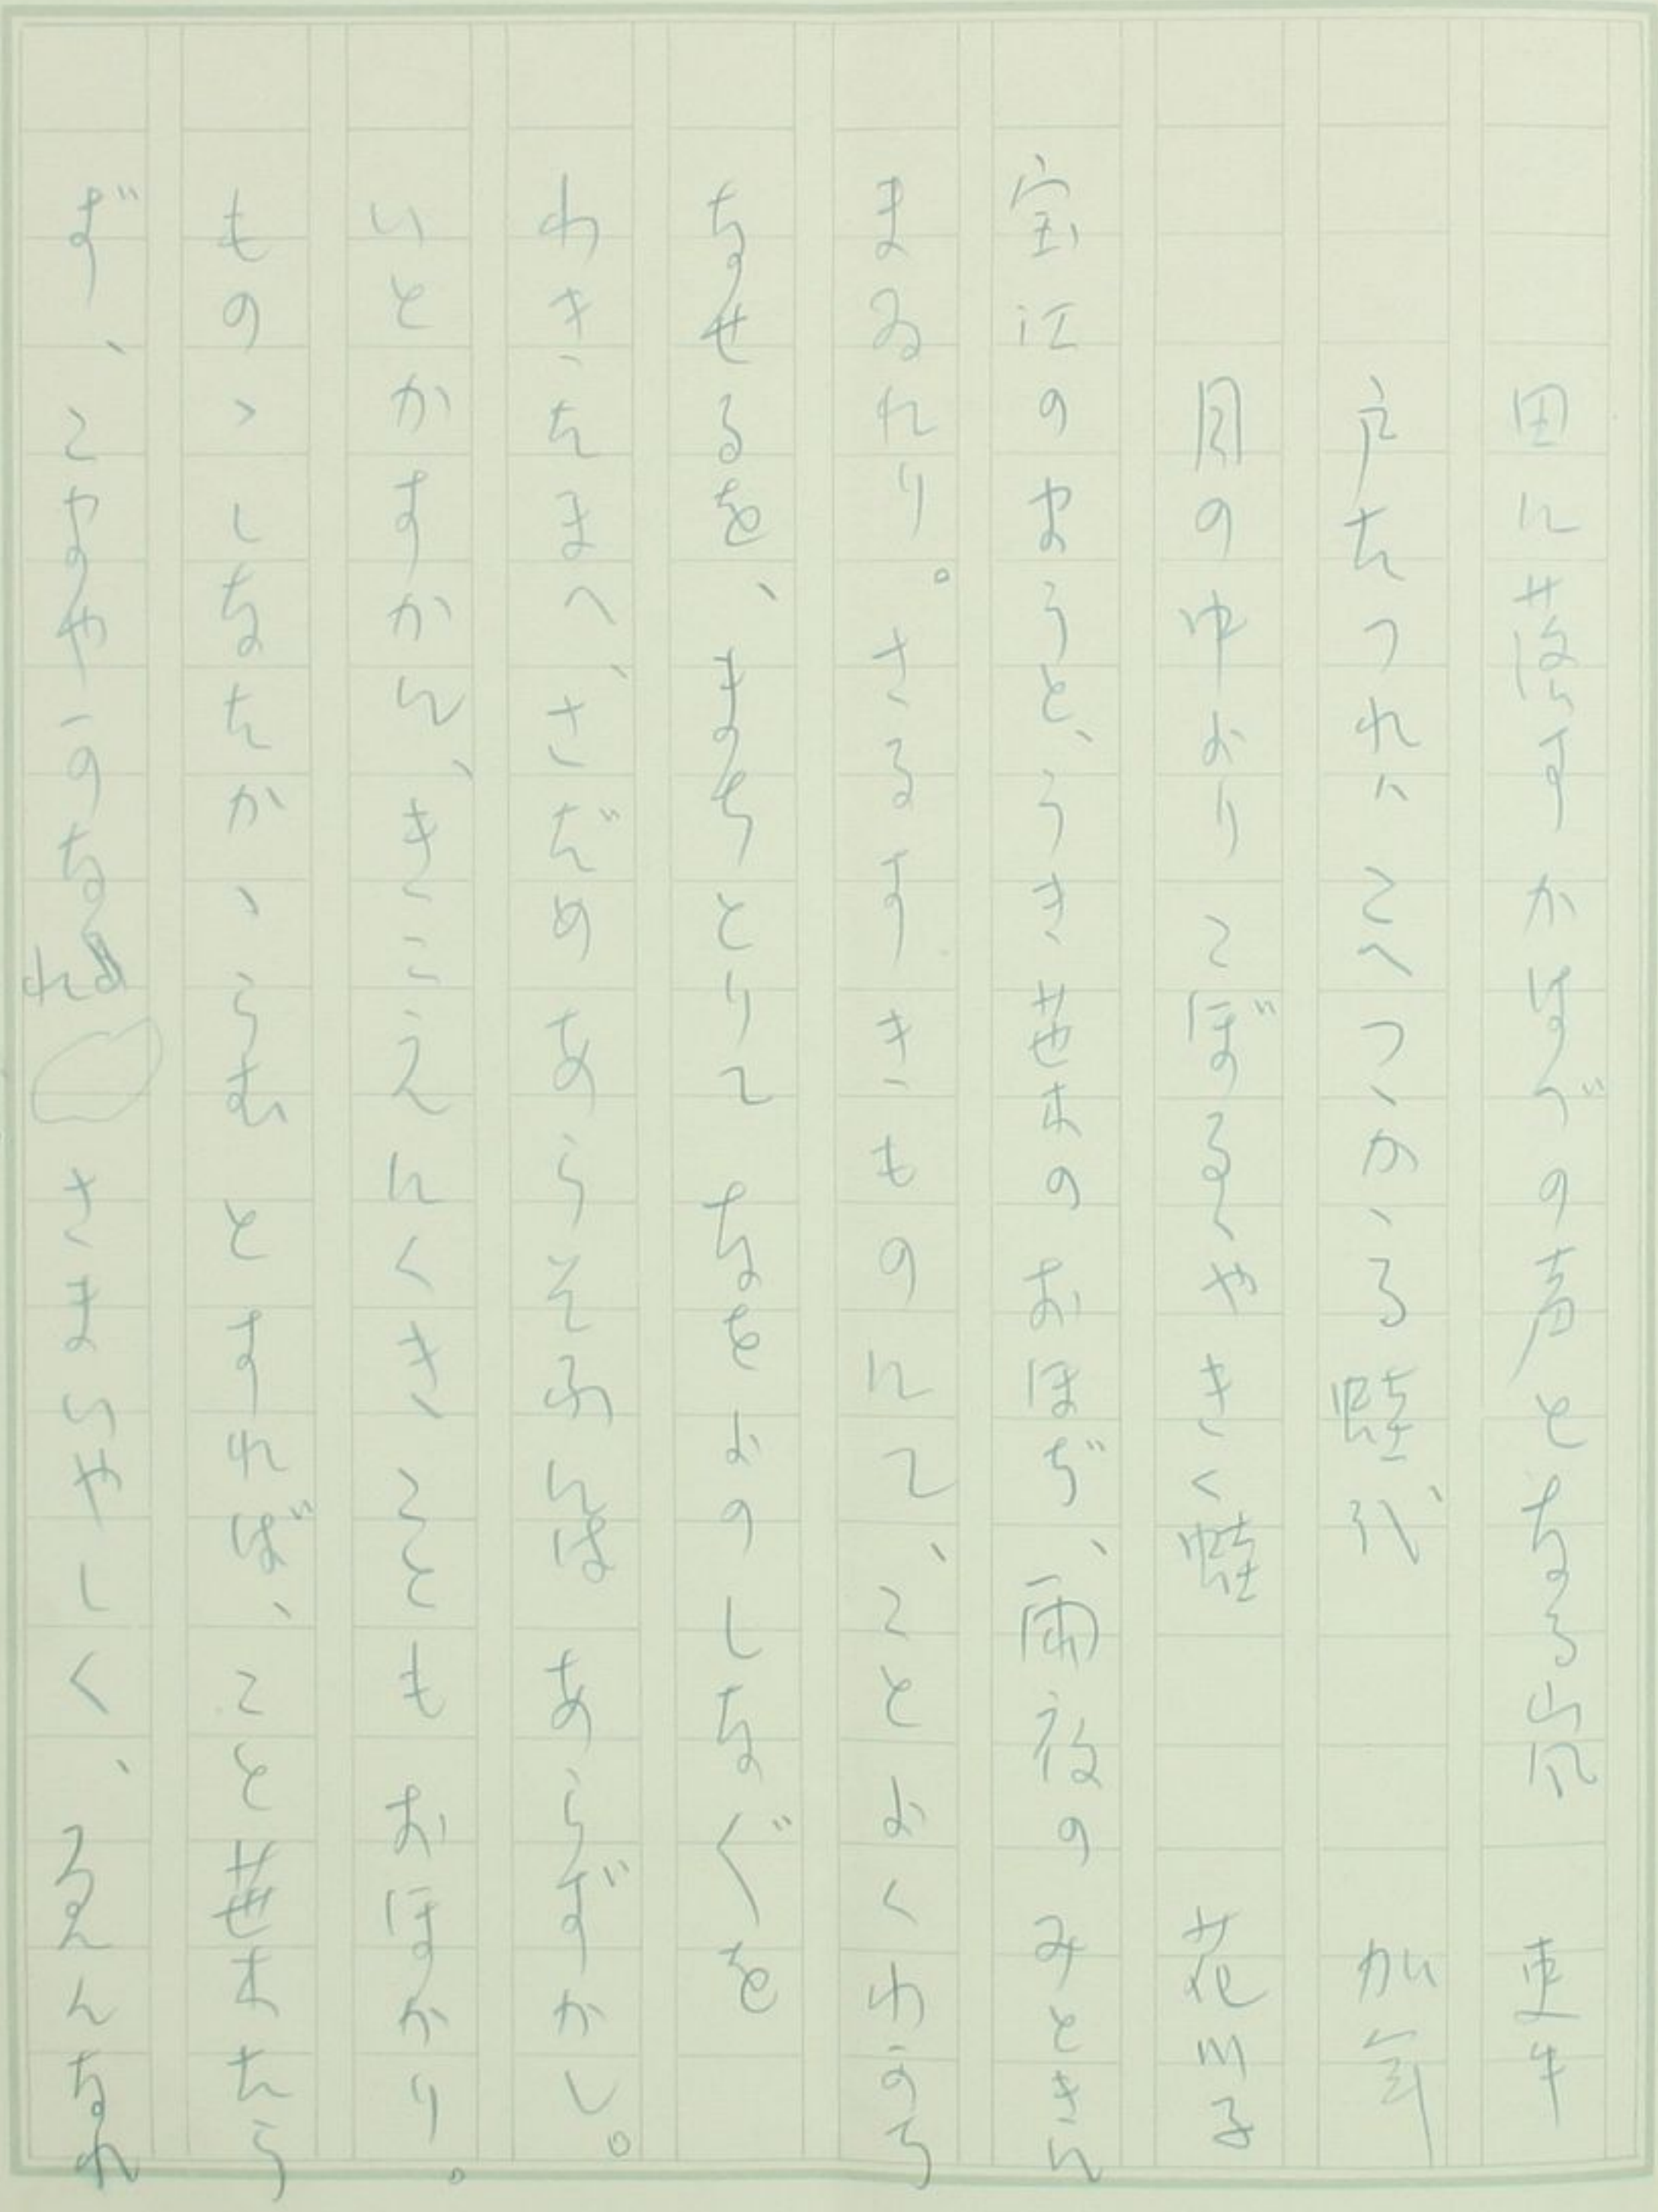 田に落すかはづの声となる山風 吏牛
戸たつれハこへつゝかゝる蛙
月の中よりこぼるゝやきく蛙 花川子
宝江のまうと、うき世木のおほぢ、雨夜のみときに
まゐれり。さるすきものにて、ことよくわうち
なせるを、まちとりてなをよのしなぐを
わきたまへ、さだめあらそふんはあらずかし。
いとかすかん、きこえにくきこともおほかり。
ものゝしなたかゝらむとすれば、こと世木たら
ず、こまや
さまいやしく、るんなれ